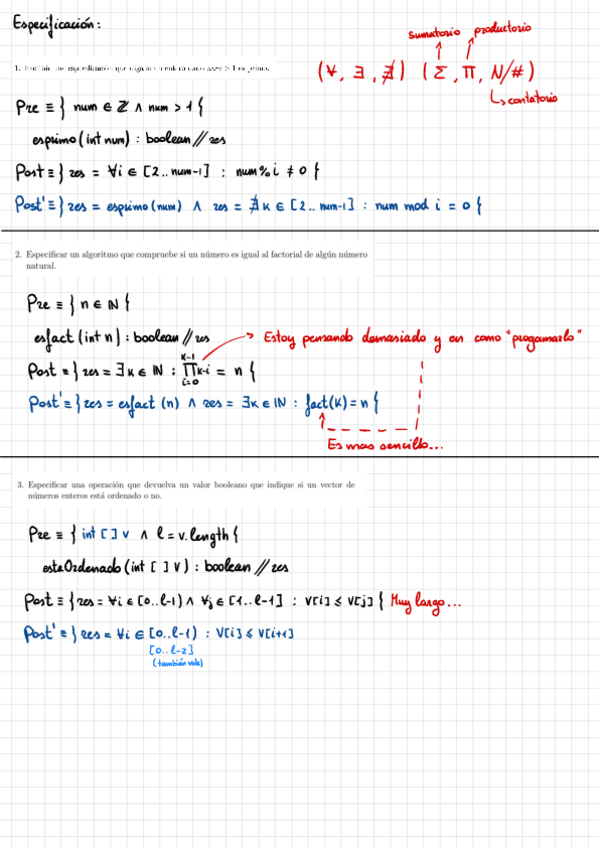 Especificación:
sumatorio productorio
(∀, ∃, ∄) (Σ, Π, N/#)
↳ contatorio
Pre ≡ } num ∈ ℤ ∧ num > 1 {
esprimo (int num) : boolean // res
Post ≡ } res = ∀i ∈ [2.. num-1] : num % i ≠ 0 {
Post' ≡ } res = esprimo (num) ∧ res = ∄ k ∈ [2.. num-1] : num mod i = 0 {
2. Especificar un algoritmo que compruebe si un número es igual al factorial de algún número
natural.
Pre ≡ } n ∈ ℕ {
esfact (int n) : boolean // res → Estoy pensando demasiado y en como "progamarlo"
Post ≡ } res = ∃ k ∈ ℕ : ∏ k-1 i=0 k-i = n {
Post' ≡ } res = esfact (n) ∧ res = ∃ k ∈ ℕ : fact(k) = n {
Es mas sencillo...
3. Especificar una operación que devuelva un valor booleano que indique si un vector de
números enteros está ordenado o no.
Pre ≡ { int [ ] v ∧ l = v.length {
estaOrdenado (int [ ] v) : boolean // res
Post ≡ { res = ∀i ∈ [0..l-1) ∧ ∀j ∈ [1..l-1] : v[i] ≤ v[j] { Muy largo...
Post' ≡ } res = ∀i ∈ [0..l-1) : v[i] ≤ v[i+1]
[0..l-2]
(también vale)